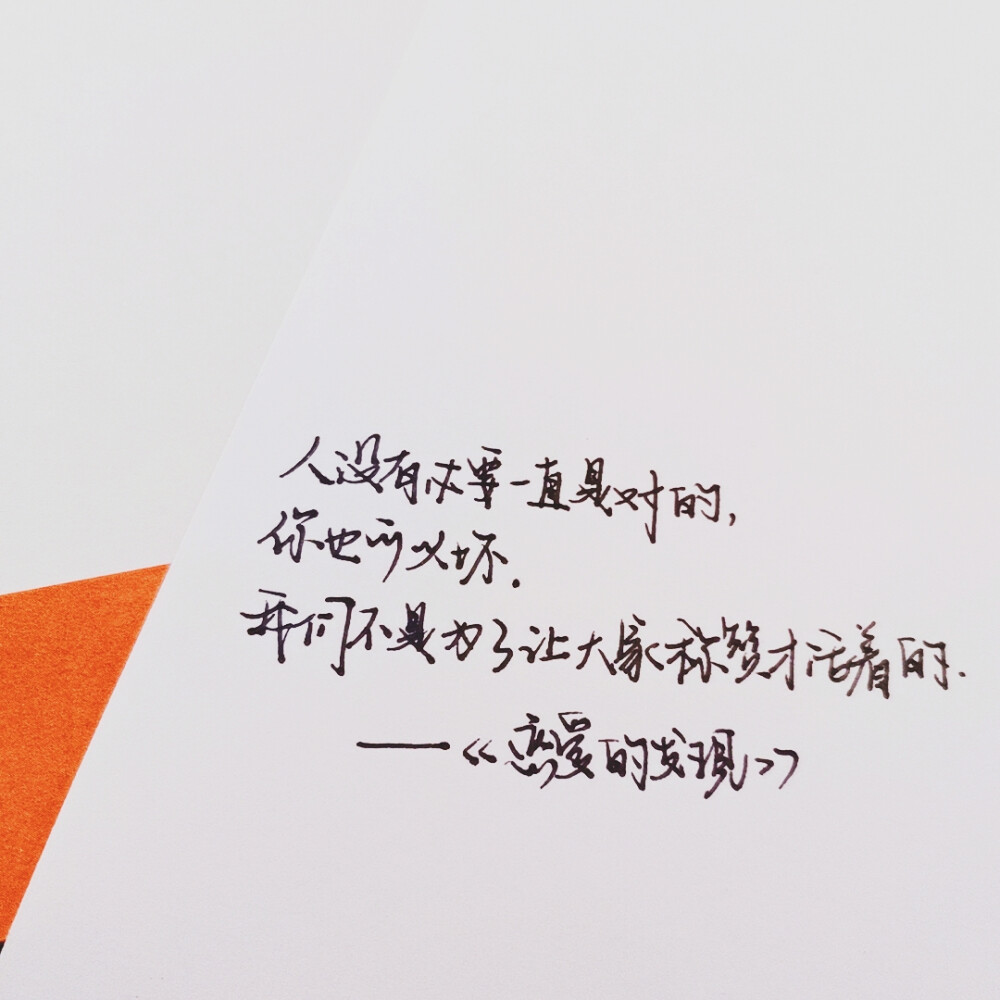 人没有必要一直是对的,
你也可以坏.
我们不是为了让大家称赞才活着的.
——《恋爱的发现》